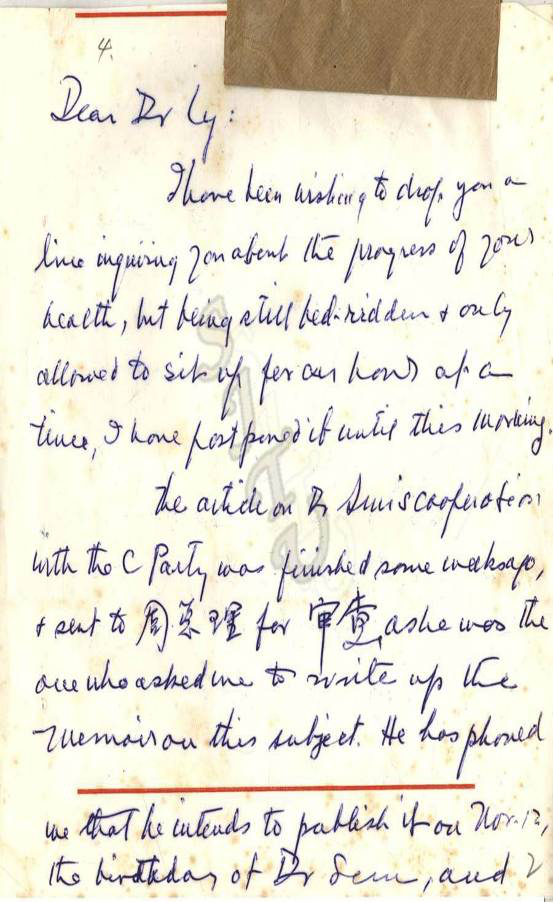 4.
Dear Dr Ly:
I have been wishing to drop you a
line inquiring you about the progress of your
health, but being still bed-ridden & only
allowed to sit up for an hour at a
time, I have postponed it until this morning.
The article on Dr Sun's cooperation
with the C Party was finished some weeks ago,
& sent to 周总理 for 审查, as he was the
one who asked me to write up the
memoir on this subject. He has phoned
me that he intends to publish it on Nov. 12,
the birthday of Dr Sun, and